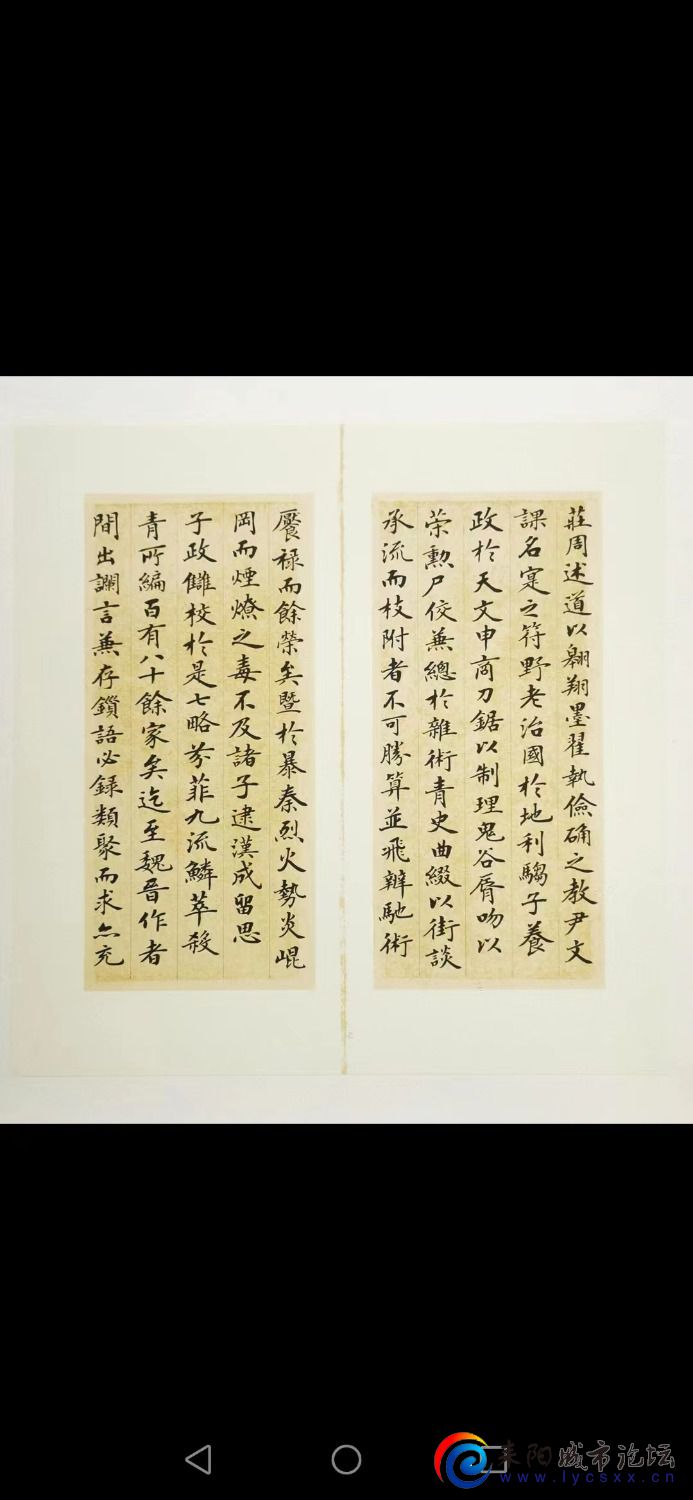 莊周述道以翱翔墨翟執儉确之教尹文
課名寔之符野老治國於地利騶子養
政於天文申商刀鋸以制理鬼谷脣吻以
荣勲尸佼兼總於雜術青史曲綴以街談
承流而枝附者不可勝算並飛辯馳術
饜禄而餘榮矣暨於暴秦烈火勢炎崐
岡而煙燎之毒不及諸子逮漢成留思
子政讎校於是七略芬菲九流鱗萃殺
青所編百有八十餘家矣迄至魏晋作者
間出讕言兼存鎖語必録類聚而求亦充
耒阳城市论坛
www.lycsxx.cn